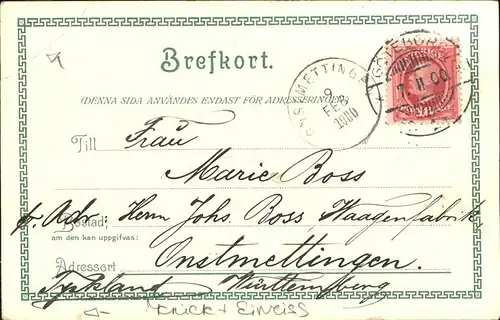 Brefkort.
(DENNA SIDA ANVÄNDES ENDAST FÖR ADRESSERINGEN)
ONSTMETTINGEN
9
FEB
1900
GÖTEBORG
7. II. 00
Till Frau
Marie Boss
pr. Adr. Herrn Johs. Boss Waagenfabrik,
Bostad,
om den kan uppgifvas:
Adressort Onstmettingen.
Tyskland Württemberg
Knick + Einriss